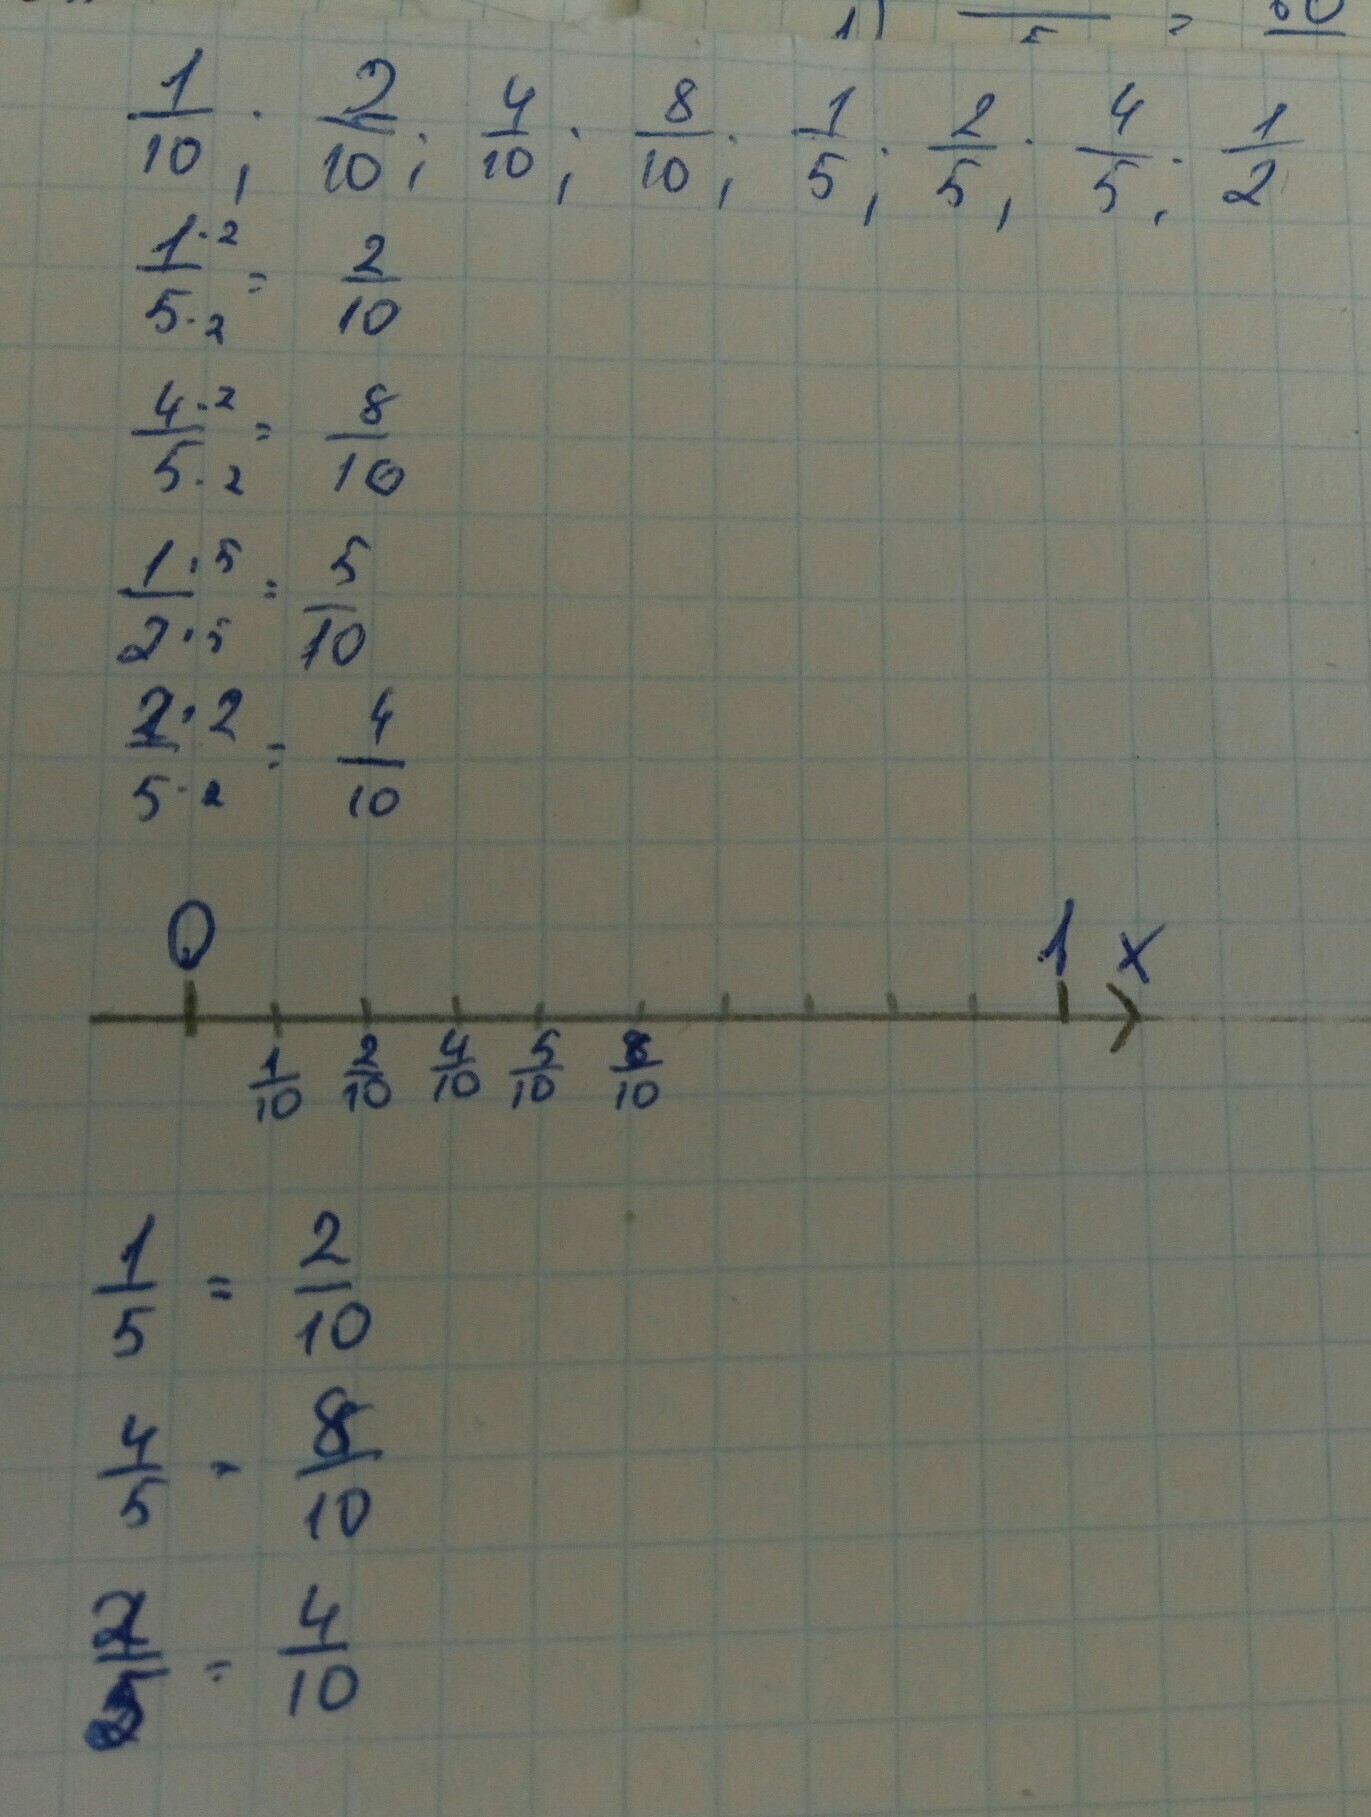 1) /5 =
1/10; 2/10; 4/10; 8/10; 1/5; 2/5; 4/5; 1/2
1·2/5·2 = 2/10
4·2/5·2 = 8/10
1·5/2·5 = 5/10
2·2/5·2 = 4/10
0 1 x
1/10 2/10 4/10 5/10 8/10
1/5 = 2/10
4/5 = 8/10
2/5 = 4/10